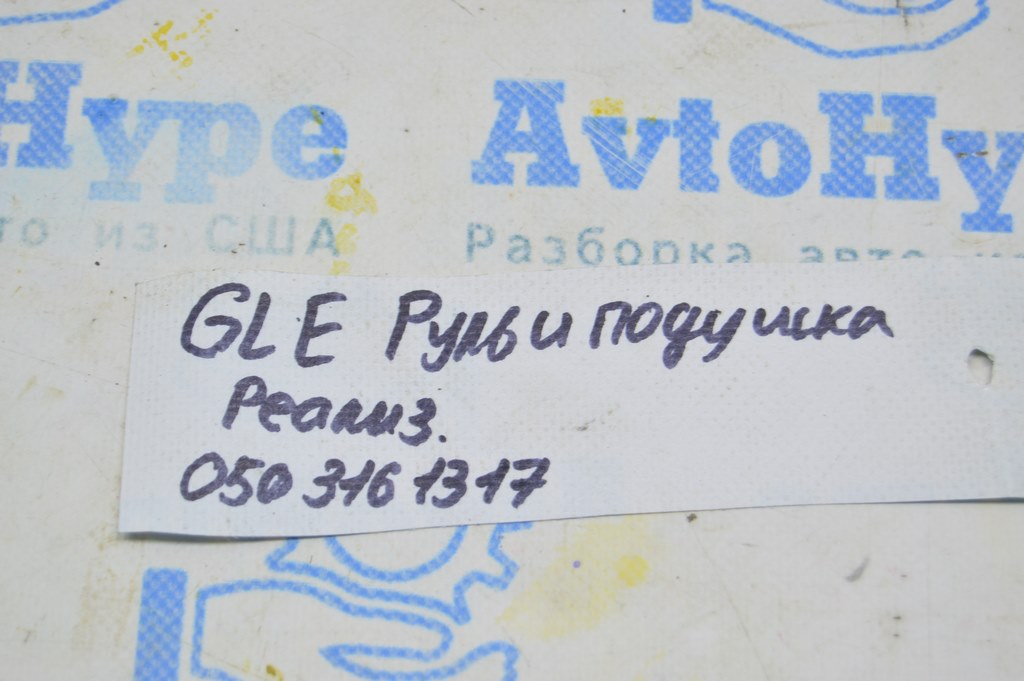 Hype AvtoHy
то из США Разборка авто
GLE Руль и подушка
Реализ.
050 316 1317